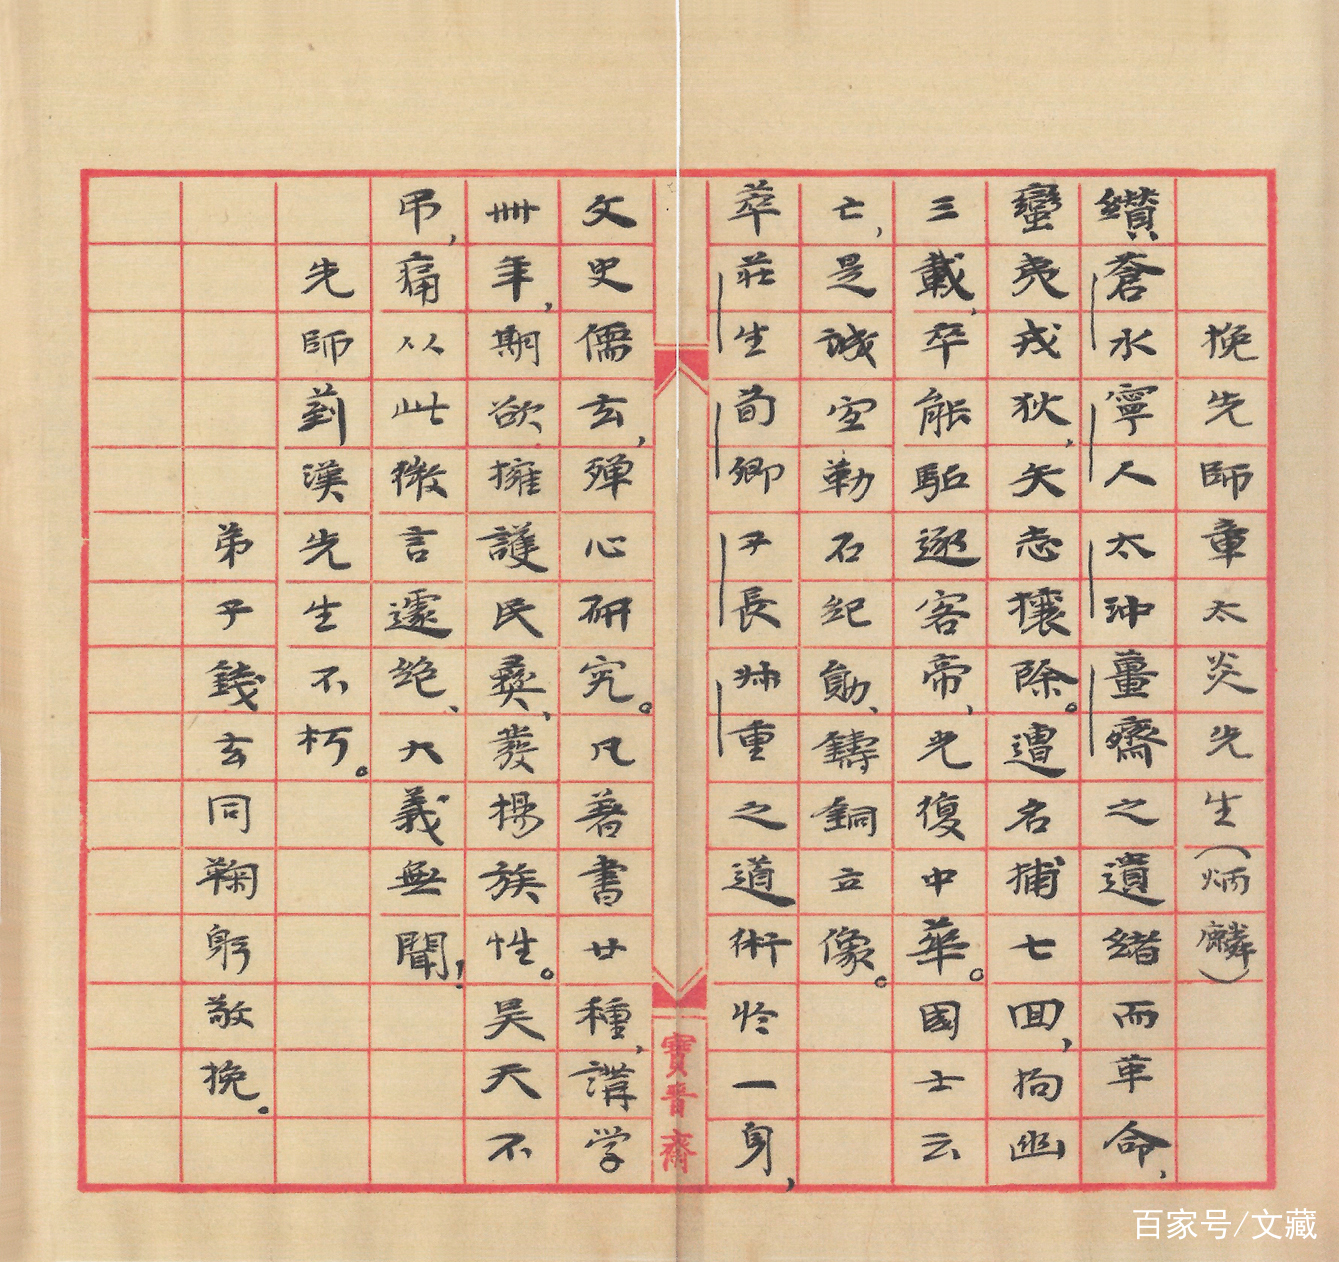 挽先師章太炎先生(炳麟)
纘蒼水寧人太沖薑齋之遺緒而革命,
蠻夷戎狄,矢志攘除。遭名捕七囬,拘幽
三載,卒能駈逐客帝,光復中華。國士云
亡,是誠宜勒石紀勛、鑄銅立像。
萃莊生荀卿子長叔重之道術於一身,
文史儒玄,殫心研究。凡著書廿種,講学
卌年,期欲擁護民彝、發揚族性。昊天不
弔,痛从此微言遽絕、大義無聞!
先師菿漢先生不朽。
弟子錢玄同鞠躬敬挽。
寶晉齋
百家号/文藏